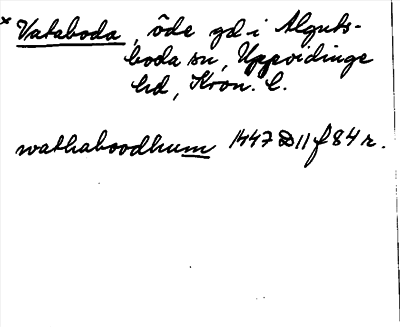 × Vataboda, öde gd i Älguts-
boda sn, Uppvidinge
hd, Kron. l.
wathaboodhum 1447 D 11 f 84 r.